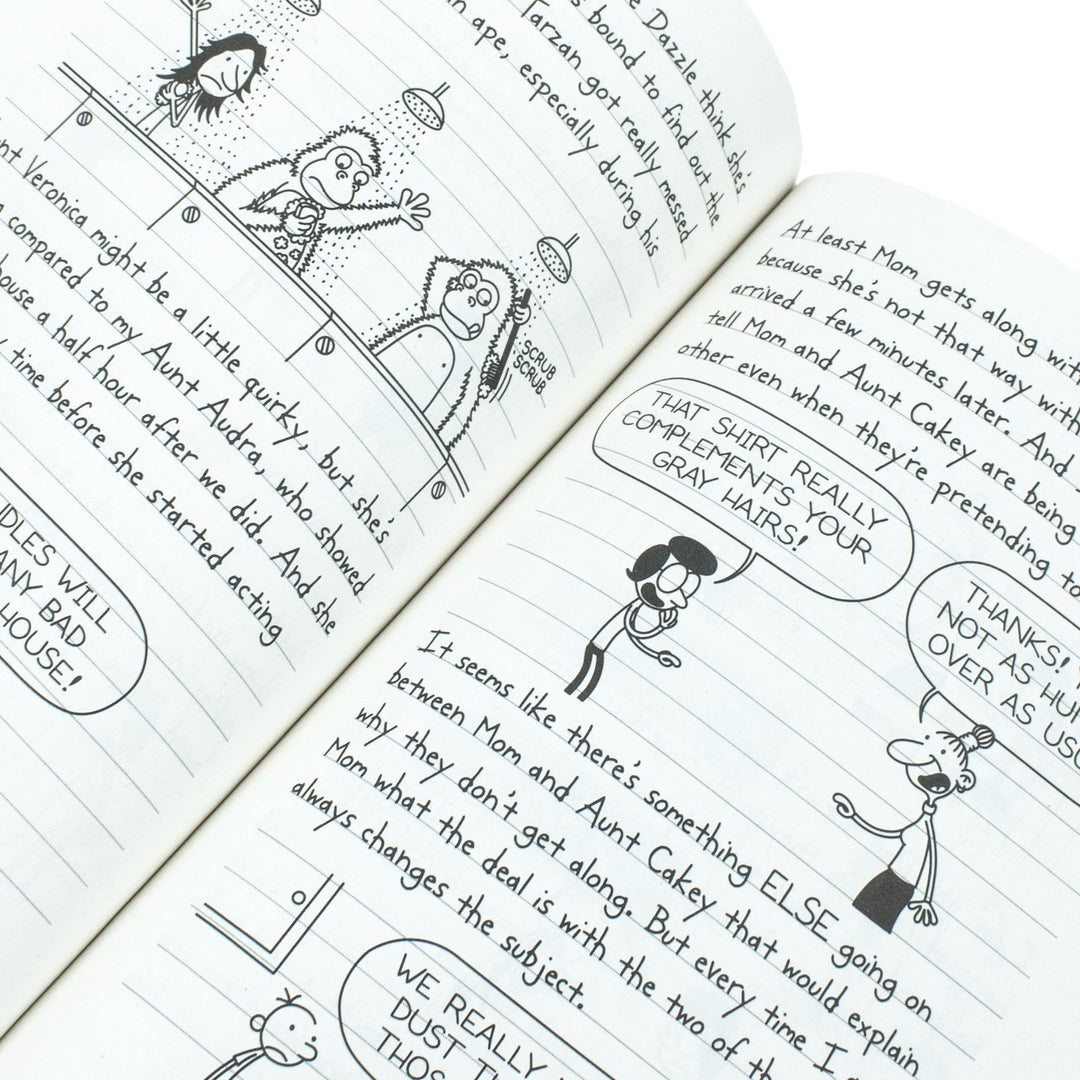 Dazzle think she's
bound to find out the
Tarzan got really messed
ape, especially during his
SCRUB
SCRUB
Veronica might be a little quirky, but she's
compared to my Aunt Audra, who showed
house a half hour after we did. And she
time before she started acting
WILL
ANY BAD
HOUSE!
At least Mom gets along with
because she's not that way with
arrived a few minutes later. And
tell Mom and Aunt Cakey are being
other even when they're pretending to
THAT SHIRT REALLY
COMPLEMENTS YOUR
GRAY HAIRS!
THANKS!
NOT AS
OVER AS
It seems like there's something ELSE going on
between Mom and Aunt Cakey that would explain
why they don't get along. But every time I
Mom what the deal is with the two of
always changes the subject.
WE REALLY
DUST